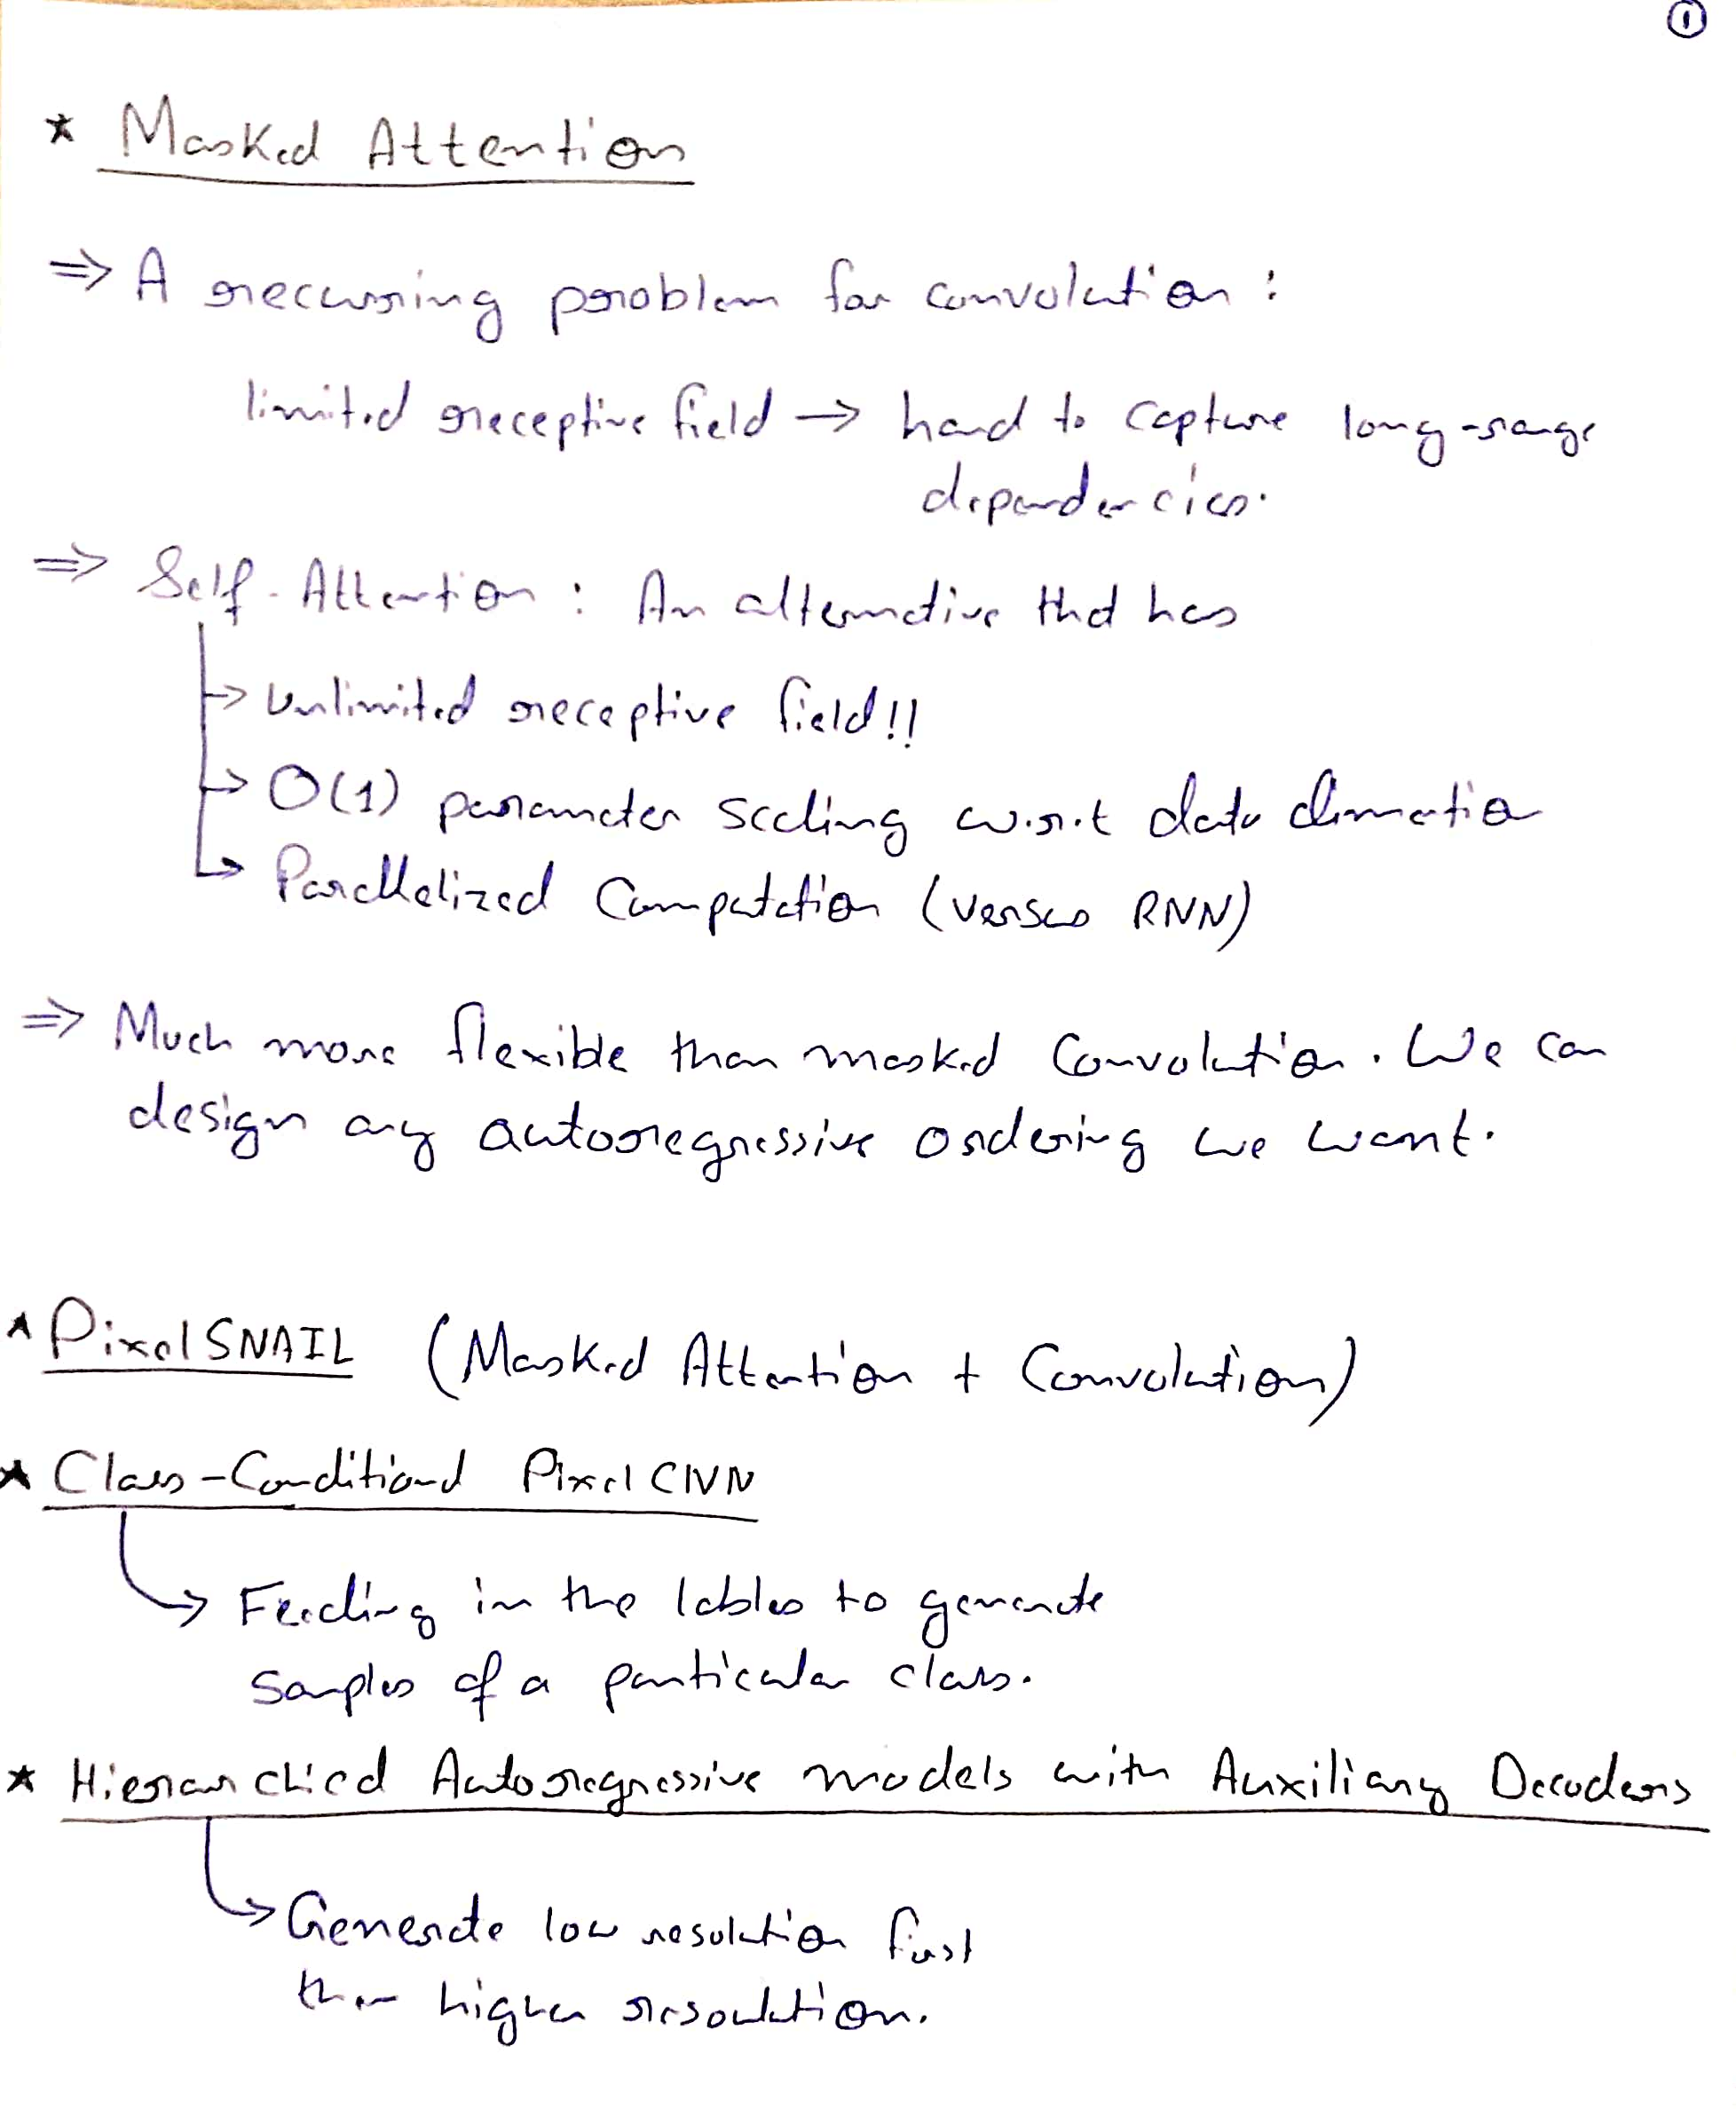 ①
* Masked Attention
⇒ A recurring problem for convolution :
limited receptive field → hard to capture long-range
dependencies.
⇒ Self-Attention : An alternative that has
→ Unlimited receptive field!!
→ O(1) parameter scaling w.r.t data dimention
→ Parallelized Computation (versus RNN)
⇒ Much more flexible than masked Convolution. We can
design any autoregressive ordering we want.
* PixelSNAIL (Masked Attention + Convolution)
* Class-Conditional PixelCNN
→ Feeding in the lables to generate
samples of a particular class.
* Hierarchical Autoregressive models with Auxiliary Decoders
→ Generate low resolution first
then higher resoulution.